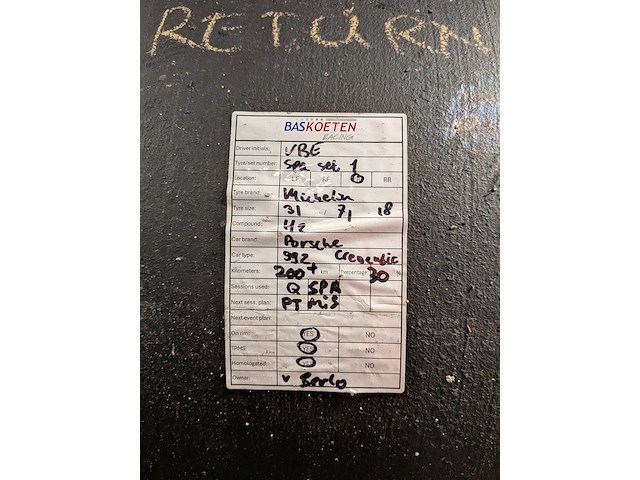 RETURN
BASKOETEN
RACING
Driver Initials: VBE
Tyreset number: Spa set 1
Location: LF RF RR
Tyre brand: Michelin
Tyre size: 31 / 71 18
Compound:
Car brand: Porsche
Car type: 992
Kilometers: 200+ km Percentage: 30
Sessions used: Q SPA
Next sess. plan: PT Mis
Next event plan:
On rim: YES NO
TPMS: YES NO
Homologated: YES NO
Owner: v